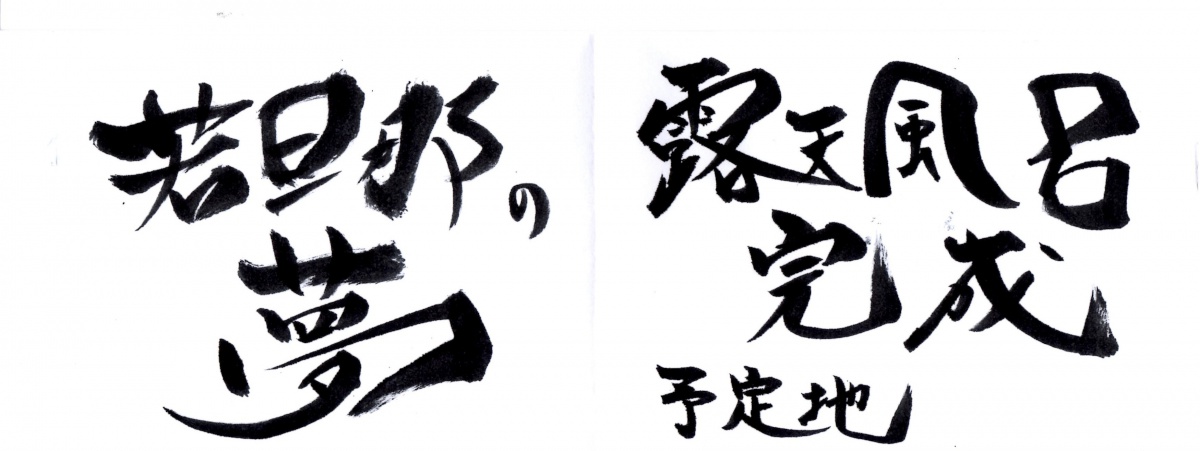 若旦那の
夢
露天風呂
完成
予定地